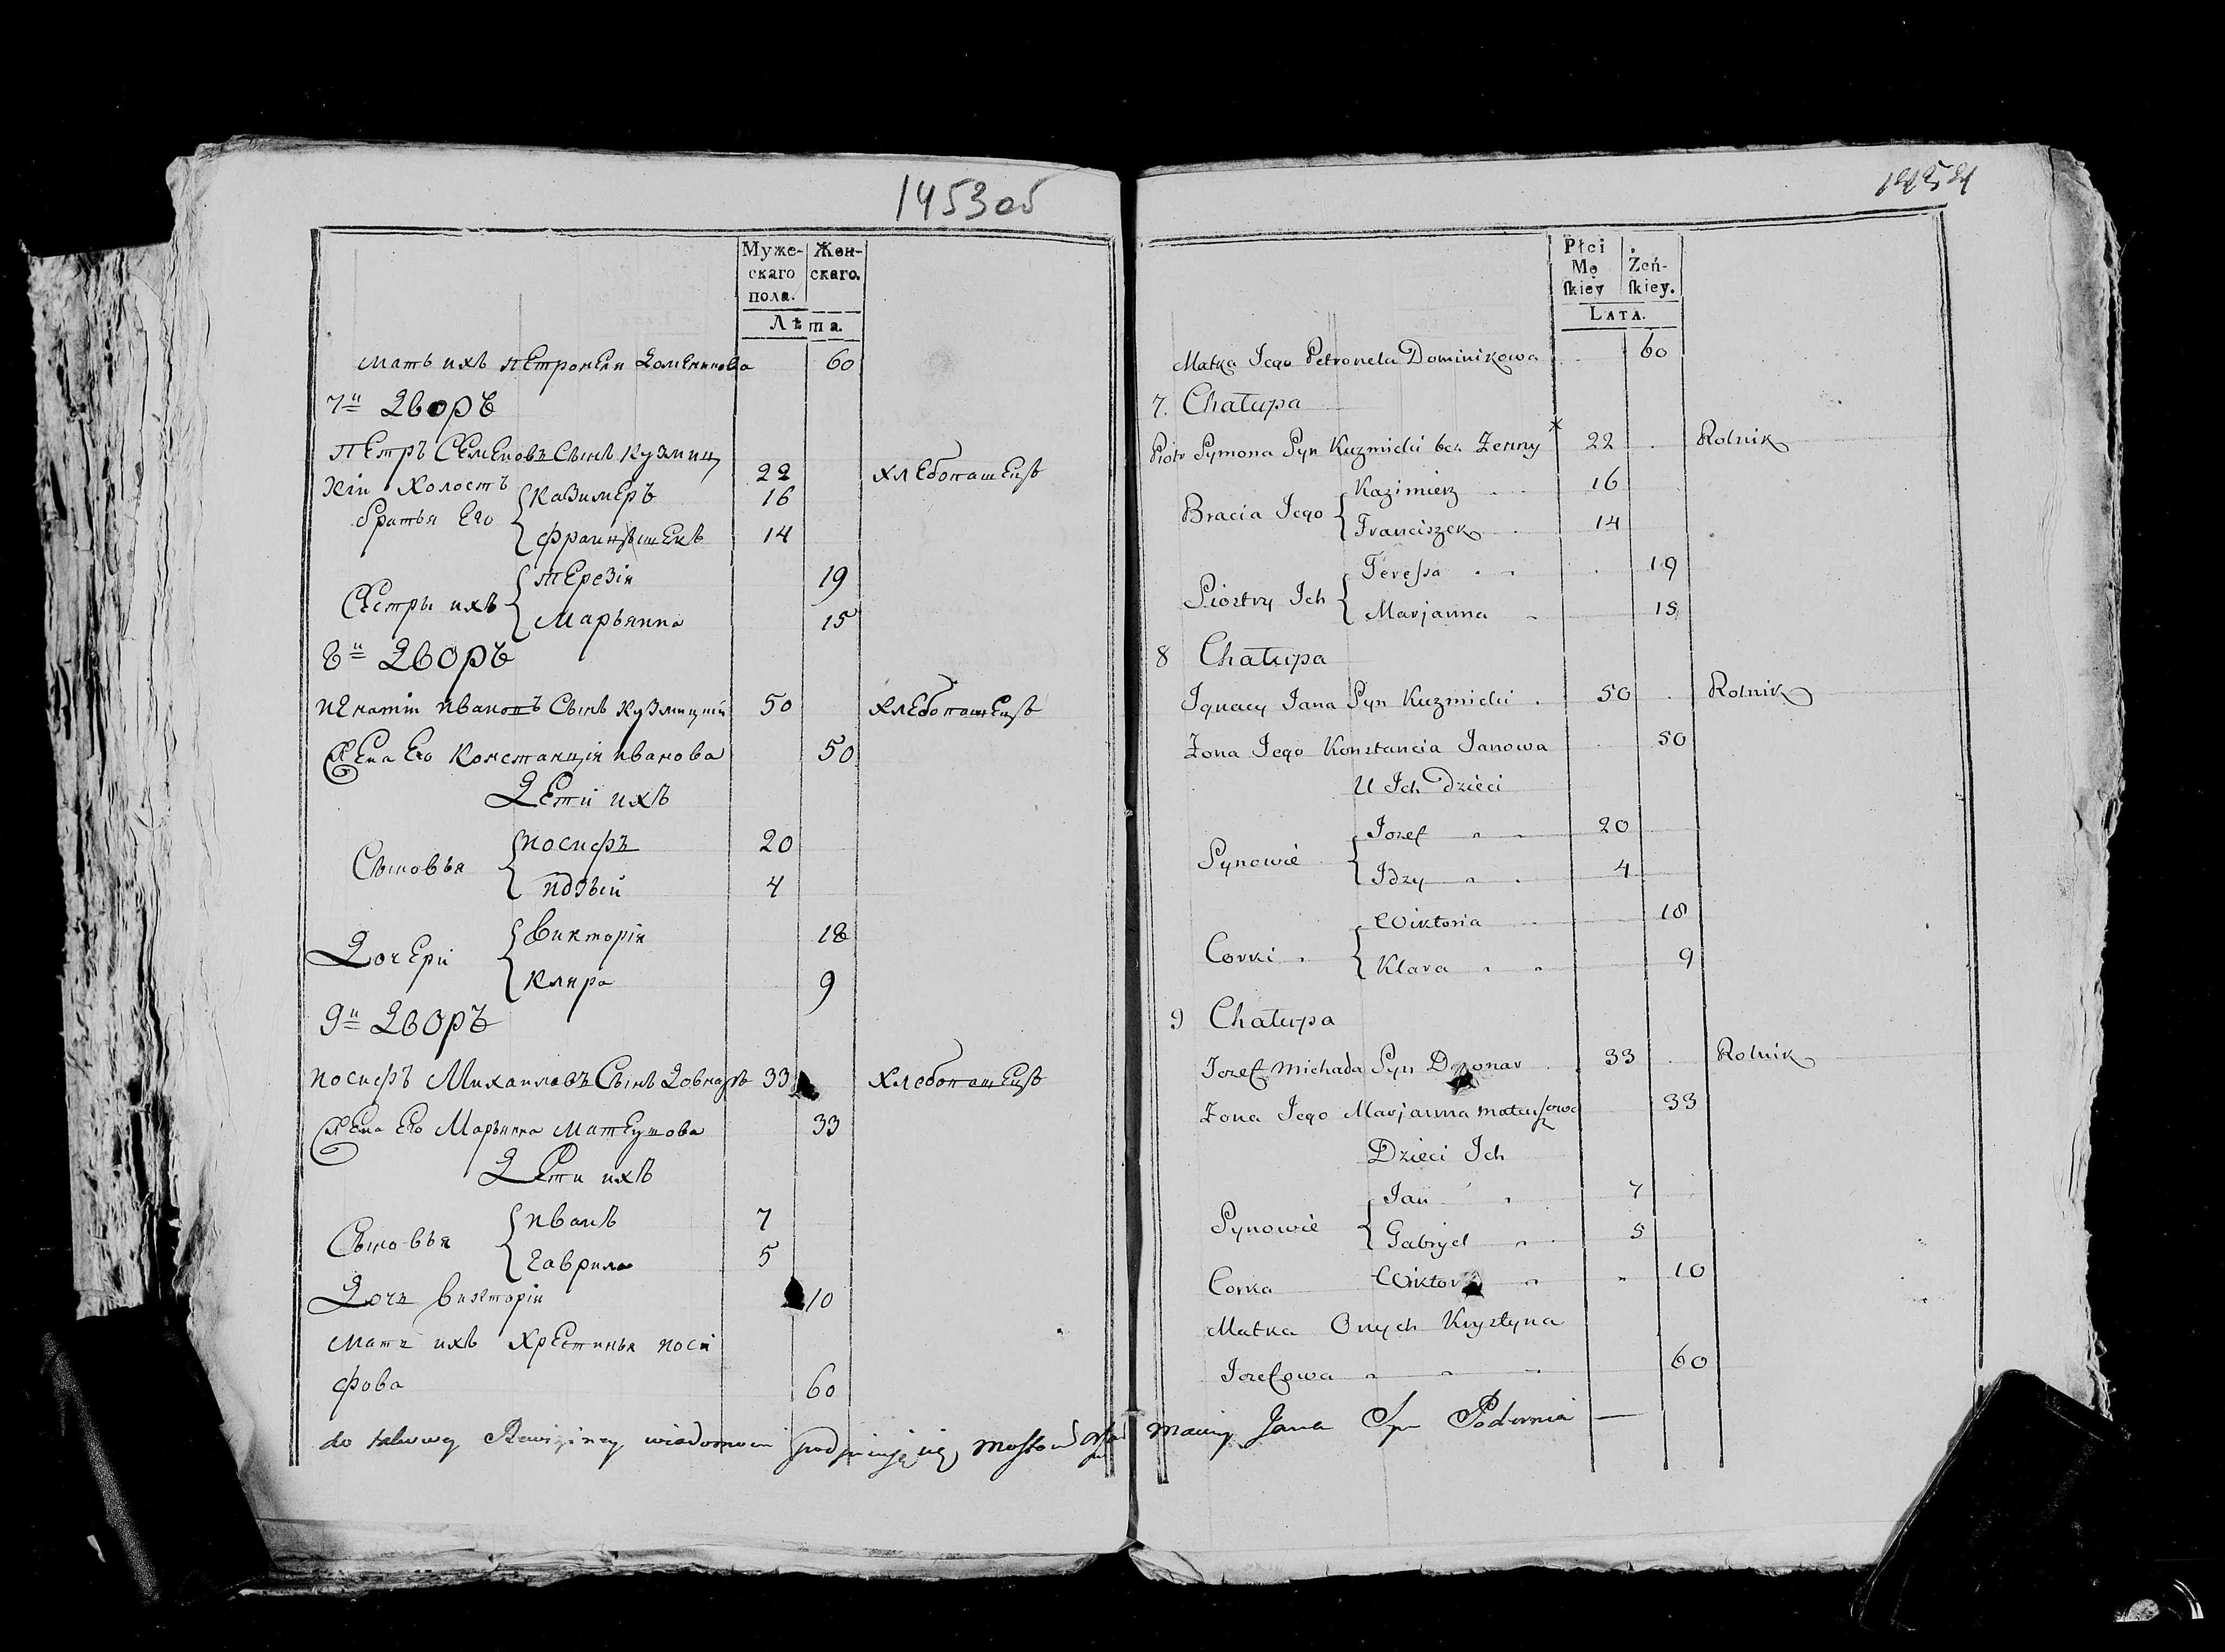 1453об
Муже-
скаго
пола.
Жен-
скаго.
Лѣта.
мать ихъ петронеля доменикова 60
7й Дворъ
петръ Семеновъ Сынъ Кузмиц
кій Холостъ 22 хлебопашецъ
братья Его
казимеръ 16
францышекъ 14
Сестры ихъ
терезія 19
Марьянна 15
8й Дворъ
игнатій ивановъ Сынъ Кузмицкій 50 хлебопашецъ
Жена Его Констанція иванова 50
Дети ихъ
Сыновья
иосифъ 20
идзый 4
Дочери
викторія 18
Кляра 9
9й Дворъ
иосифъ Михаиловъ Сынъ Довнаръ 33 хлебопашецъ
Жена Его Марьянна матеушова 33
Дети ихъ
Сыновья
иванъ 7
гаврило 5
Дочь викторія 10
мать ихъ Хрестинья иоси
фова 60
1454
Płci
Mę
skiey
Żeń-
skiey.
LATA.
Matka Jego Petronela Dominikowa 60
7. Chałupa
Piotr Symona Syn Kuzmicki bez Zenny 22 Rolnik
Bracia Jego
Kazimierz 16
Franciszek 14
Siostry Ich
Teressa 19
Marjanna 15
8 Chałupa
Ignacy Jana Syn Kuzmicki 50 Rolnik
Zona Jego Konstancia Janowa 50
U Ich Dzieci
Synowie
Jozef 20
Idzy 4
Corki
Wiktoria 18
Klara 9
9 Chałupa
Jozef Michała Syn Downar 33 Rolnik
Zona Jego Marjanna mateuszowa 33
Dzieci Ich
Synowie
Jan 7
Gabryel 5
Corka Wiktoria 10
Matka Onych Krystyna
Jozefowa 60
do takowey Rewiziney wiadomosci podpisuję się Maciey Jana Syn